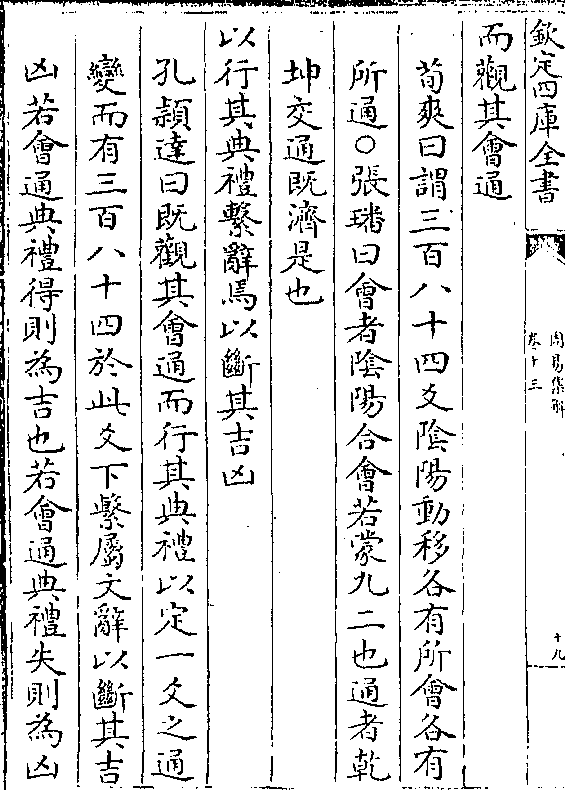 欽定四庫全書
周易集解
卷十三
十九
而觀其會通
荀爽曰謂三百八十四爻陰陽動移各有所會各有
所通○張璠曰會者陰陽合會若蒙九二也通者乾
坤交通既濟是也
以行其典禮繫辭焉以斷其吉凶
孔頴達曰既觀其會通而行其典禮以定一爻之通
變而有三百八十四於此爻下繫屬文辭以斷其吉
凶若會通典禮得則為吉也若會通典禮失則為凶